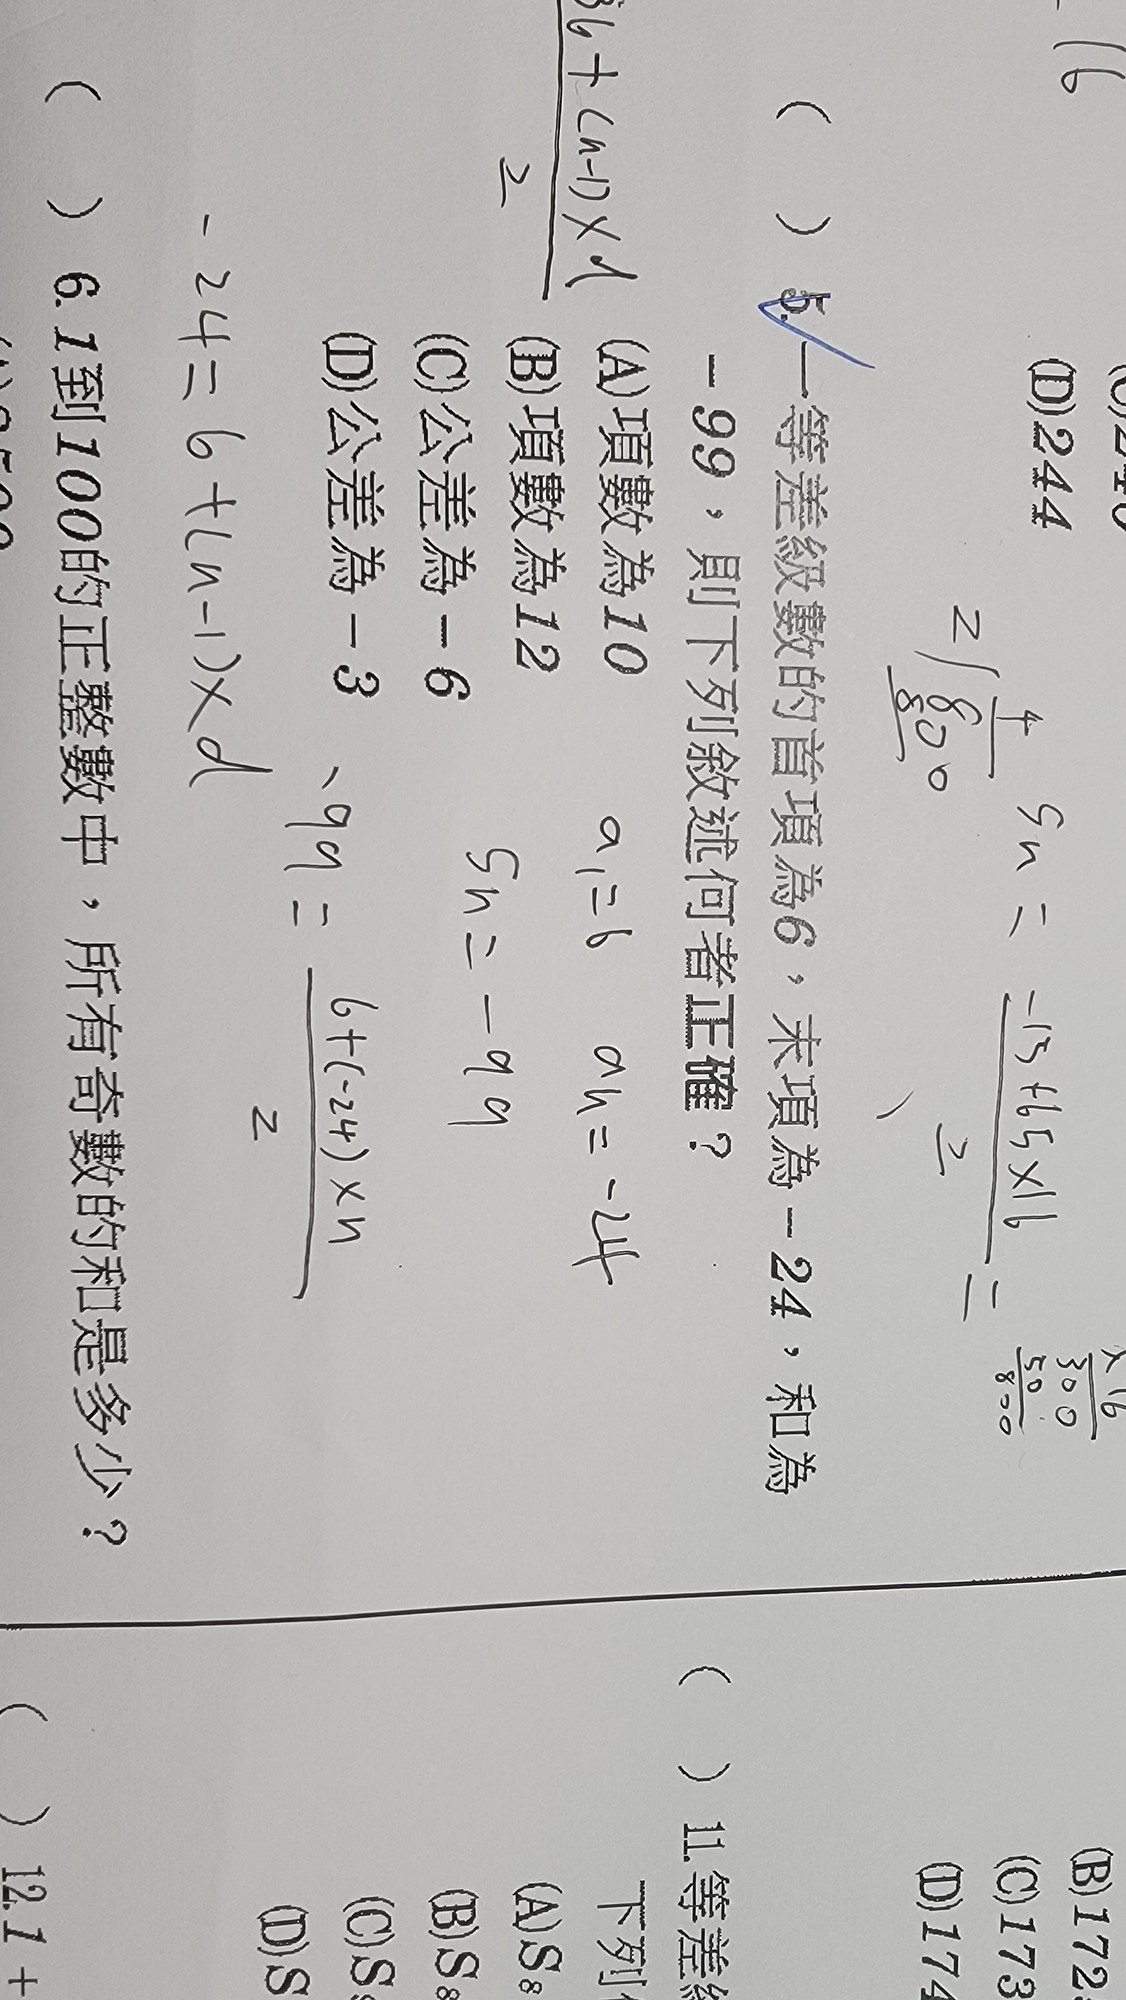 16
(D)244
Sn = -15+65×16 / 2 =
×16
300
50
800
4
2 800
8
( ) 5. 一等差級數的首項為6，末項為-24，和為
-99，則下列敘述何者正確？
(A)項數為10
(B)項數為12
(C)公差為-6
(D)公差為-3
a₁=6 an=-24
Sn=-99
-99= 6+(-24)×n / 2
+(n-1)×d
2
-24=6+(n-1)×d
( ) 6. 1到100的正整數中，所有奇數的和是多少？
(B)172
(C)173
(D)174
( ) 11. 等差
下列
(A)S₈
(B)S₈
(C)S
(D)S
( ) 12. 1+